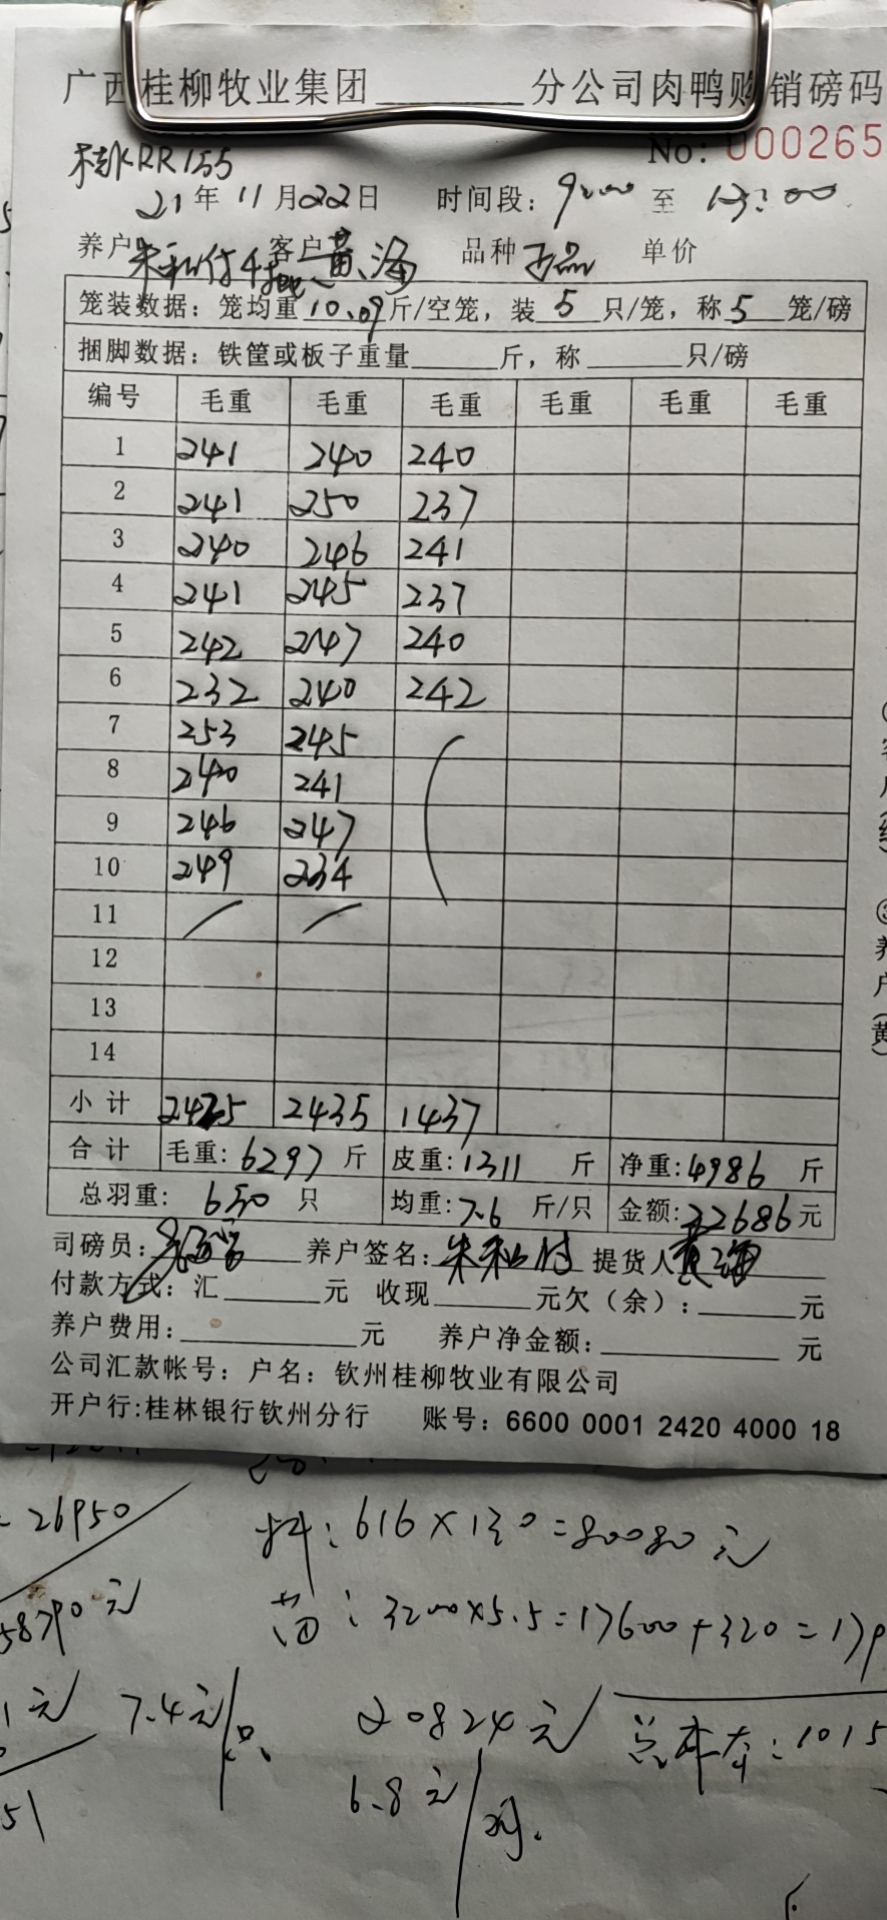 广西桂柳牧业集团______分公司肉鸭购销磅码
No: 000265
RR155
21年11月22日 时间段: 9:00 至 13:00
养户 朱和付 客户 黄海 品种 单价
笼装数据: 笼均重10.09斤/空笼, 装5只/笼, 称5笼/磅
捆脚数据: 铁筐或板子重量____斤, 称____只/磅
编号 毛重 毛重 毛重 毛重 毛重 毛重
1 241 240 240
2 241 250 237
3 240 246 241
4 241 245 237
5 242 247 240
6 232 240 242
7 253 245
8 240 241
9 246 247
10 249 234
11
12
13
14
小计 2425 2435 1437
合计 毛重: 6297 斤 皮重: 1311 斤 净重: 4986 斤
总羽重: 650 只 均重: 7.6 斤/只 金额: 22686元
司磅员: 养户签名: 朱和付 提货人 黄海
付款方式: 汇____元 收现____元欠(余): ____元
养户费用: ____元 养户净金额: ____元
公司汇款帐号: 户名: 钦州桂柳牧业有限公司
开户行:桂林银行钦州分行 账号: 6600 0001 2420 4000 18
养户(黄)
26950
料: 616×130=80080元
58790元
苗: 3200×5.5=17600+320=179
1元 7.4元/只 20824元 总成本: 1015
51 6.8元/羽.